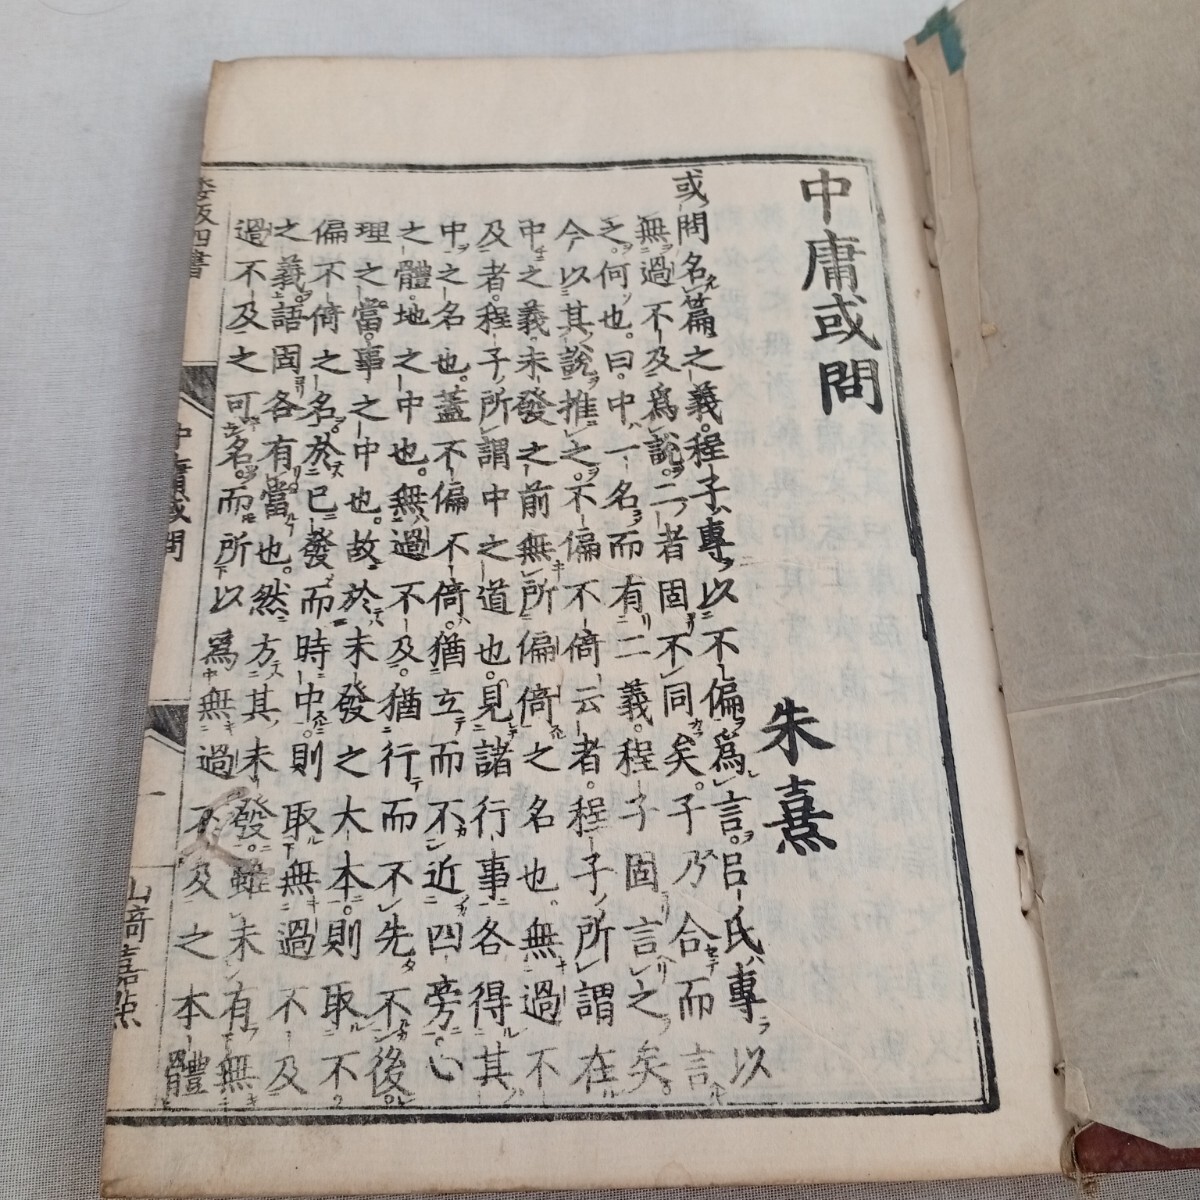 中庸或問
朱熹
或問名篇之義。程子專以不偏爲言。呂氏專以
無過不及爲說。二者固不同矣。子乃合而言
之。何也。曰。中一名而有二義。程子固言之矣。
今以其說推之。不偏不倚云者。程子所謂在
中之義。未發之前無所偏倚之名也。無過不
及者。程子所謂中之道也。見諸行事各得其
中之名也。蓋不偏不倚。猶立而不近四旁。心
之體。地之中也。無過不及。猶行而不先不後。
理之當。事之中也。故於未發之大本。則取不
偏不倚之名。於已發而時中。則取無過不及
之義。語固各有當也。然方其未發。雖未有無
過不及之可名。而所以爲無過不及之本體
倭板四書
中庸或問
一
山﨑嘉點